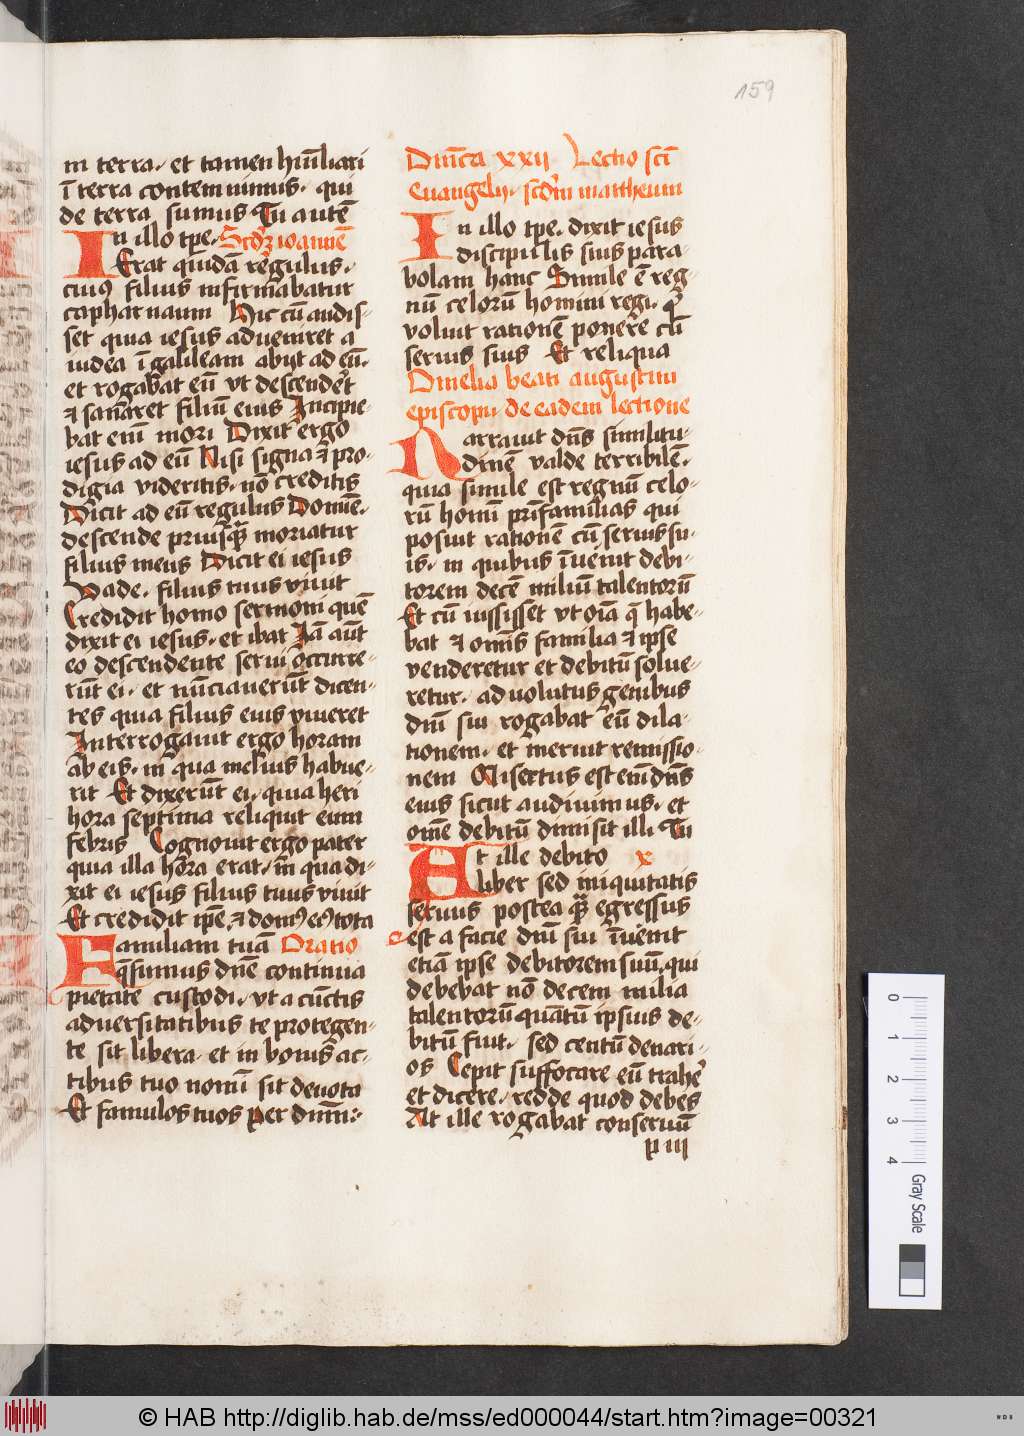 159
in terra. et tamen hūiliari
ī terra contemnimus. qui
de terra sumus Tu autē
In illo tpe. Scd'z ioannē
Erat quidā regulus.
cui9 filius infirmabatur
capharnaum Hic cū audis-
set quia iesus adveniret a
iudea ī galileam abijt ad eū.
et rogabat eū vt descenderet
⁊ sanaret filiū eius Incipie-
bat eni mori Dixit ergo
iesus ad eū Nisi signa ⁊ pro-
digia videritis. nō creditis
Dicit ad eū regulus Domīe.
descende priusq̄ moriatur
filius meus Dicit ei iesus
Vade. filius tuus viuit
Credidit homo sermoni quē
dixit ei iesus. et ibat Jā aūt
eo descendente serui occurre-
rūt ei. et nūciauerūt dicen-
tes quia filius eius viueret
Interrogauit ergo horam
ab eis. in qua melius habue-
rit Et dixerūt ei. quia heri
hora septima reliquit eum
febris Cognouit ergo pater
quia illa hora erat. in qua di-
xit ei iesus filius tuus viuit
Et credidit ipe. ⁊ dom9 ei9 tota
Familiam tuā Oratio
q̄sumus dn̄e continua
pietate custodi. vt a cūctis
aduersitatibus te protegen-
te sit libera. et in bonis ac-
tibus tuo nomī sit deuota
Et famulos tuos per dnm:
Dnica xxij Lectio sci
euangelij. scd'm mattheum
In illo tpe. dixit iesus
discipulis suis para-
bolam hanc Simile ē reg-
nū celorū homini regi. q'
voluit rationē ponere cū
seruis suis Et reliqua
Omelia beati augustini
episcopi. de eadem lectione
Narrauit dn̄s similitu-
dinē valde terribilē.
quia simile est regnū celo-
rū homī prīfamilias qui
posuit rationē cū seruis su-
is. in quibus īuenit debi-
torem decē miliū talentorū
Et cū iussisset vt oīa q̄ habe-
bat ⁊ omīs familia ⁊ ipse
venderetur et debitū solue-
retur. aduolutus genibus
dnī sui rogabat eū dila-
tionem. et meruit remissio-
nem Misertus est eni dn̄s
eius sicut audiuimus. et
omē debitū dimisit illi. Tu
At ille debito x
liber sed iniquitatis
seruus postea q̄ egressus
est a facie dnī sui īuenit
etiā ipse debitorem suū. qui
debebat nō decem milia
talentorū quātū ipsius de-
bitū fuit. sed centū denari-
os Cepit suffocare eū trahe'
et dicere. redde quod debes
At ille rogabat conseruū
p iij
0 1 2 3 4
Gray Scale
© HAB http://diglib.hab.de/mss/ed000044/start.htm?image=00321